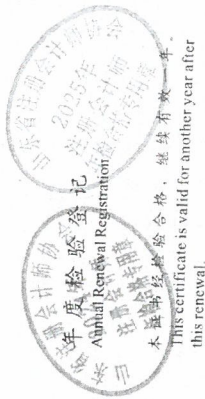 年度检验登记
Annual Renewal Registration
本证书经检验合格，继续有效一年。
This certificate is valid for another year after
this renewal.
山东省注册会计师协会
2025年
注册会计师
山东省注册会计师协会
注册会计师